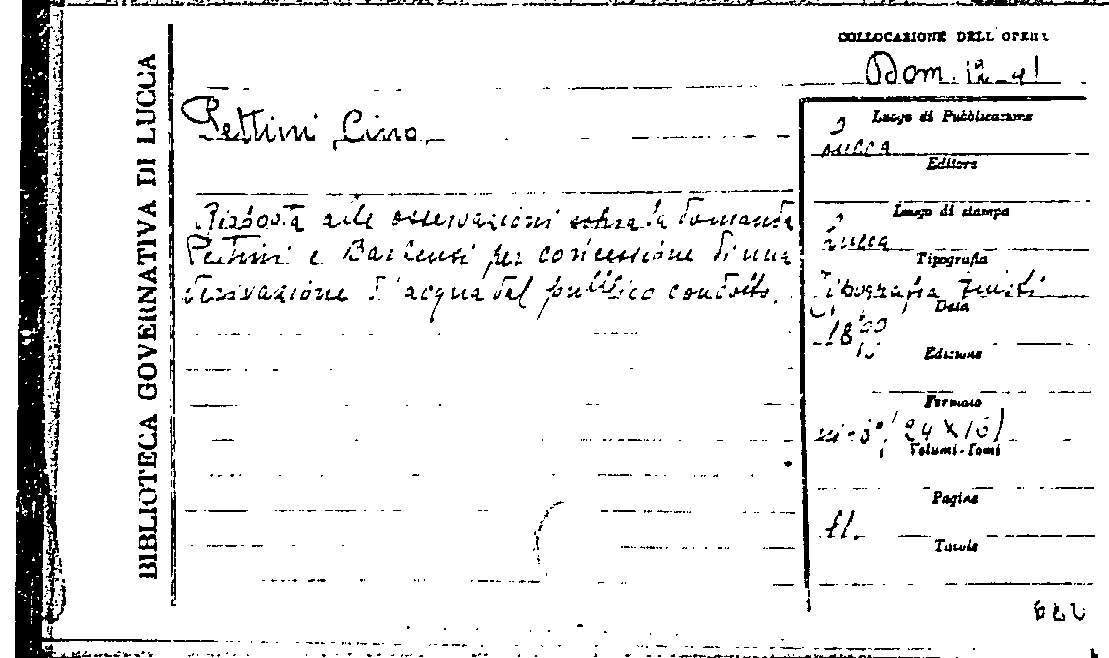 BIBLIOTECA GOVERNATIVA DI LUCCA
COLLOCAZIONE DELL'OPERA
Dom.
Pettini Cino
Risposta alle osservazioni sopra la domanda
Pettini e Barlensi per concessione di una
derivazione d'acqua dal pubblico condotto.
Luogo di Pubblicazione
Lucca
Editore
Luogo di stampa
Lucca
Tipografia
Tipografia Giusti
Data
Edizione
Formato
in-8° (24 X 16)
Volumi-Tomi
Pagine
11.
Tavole